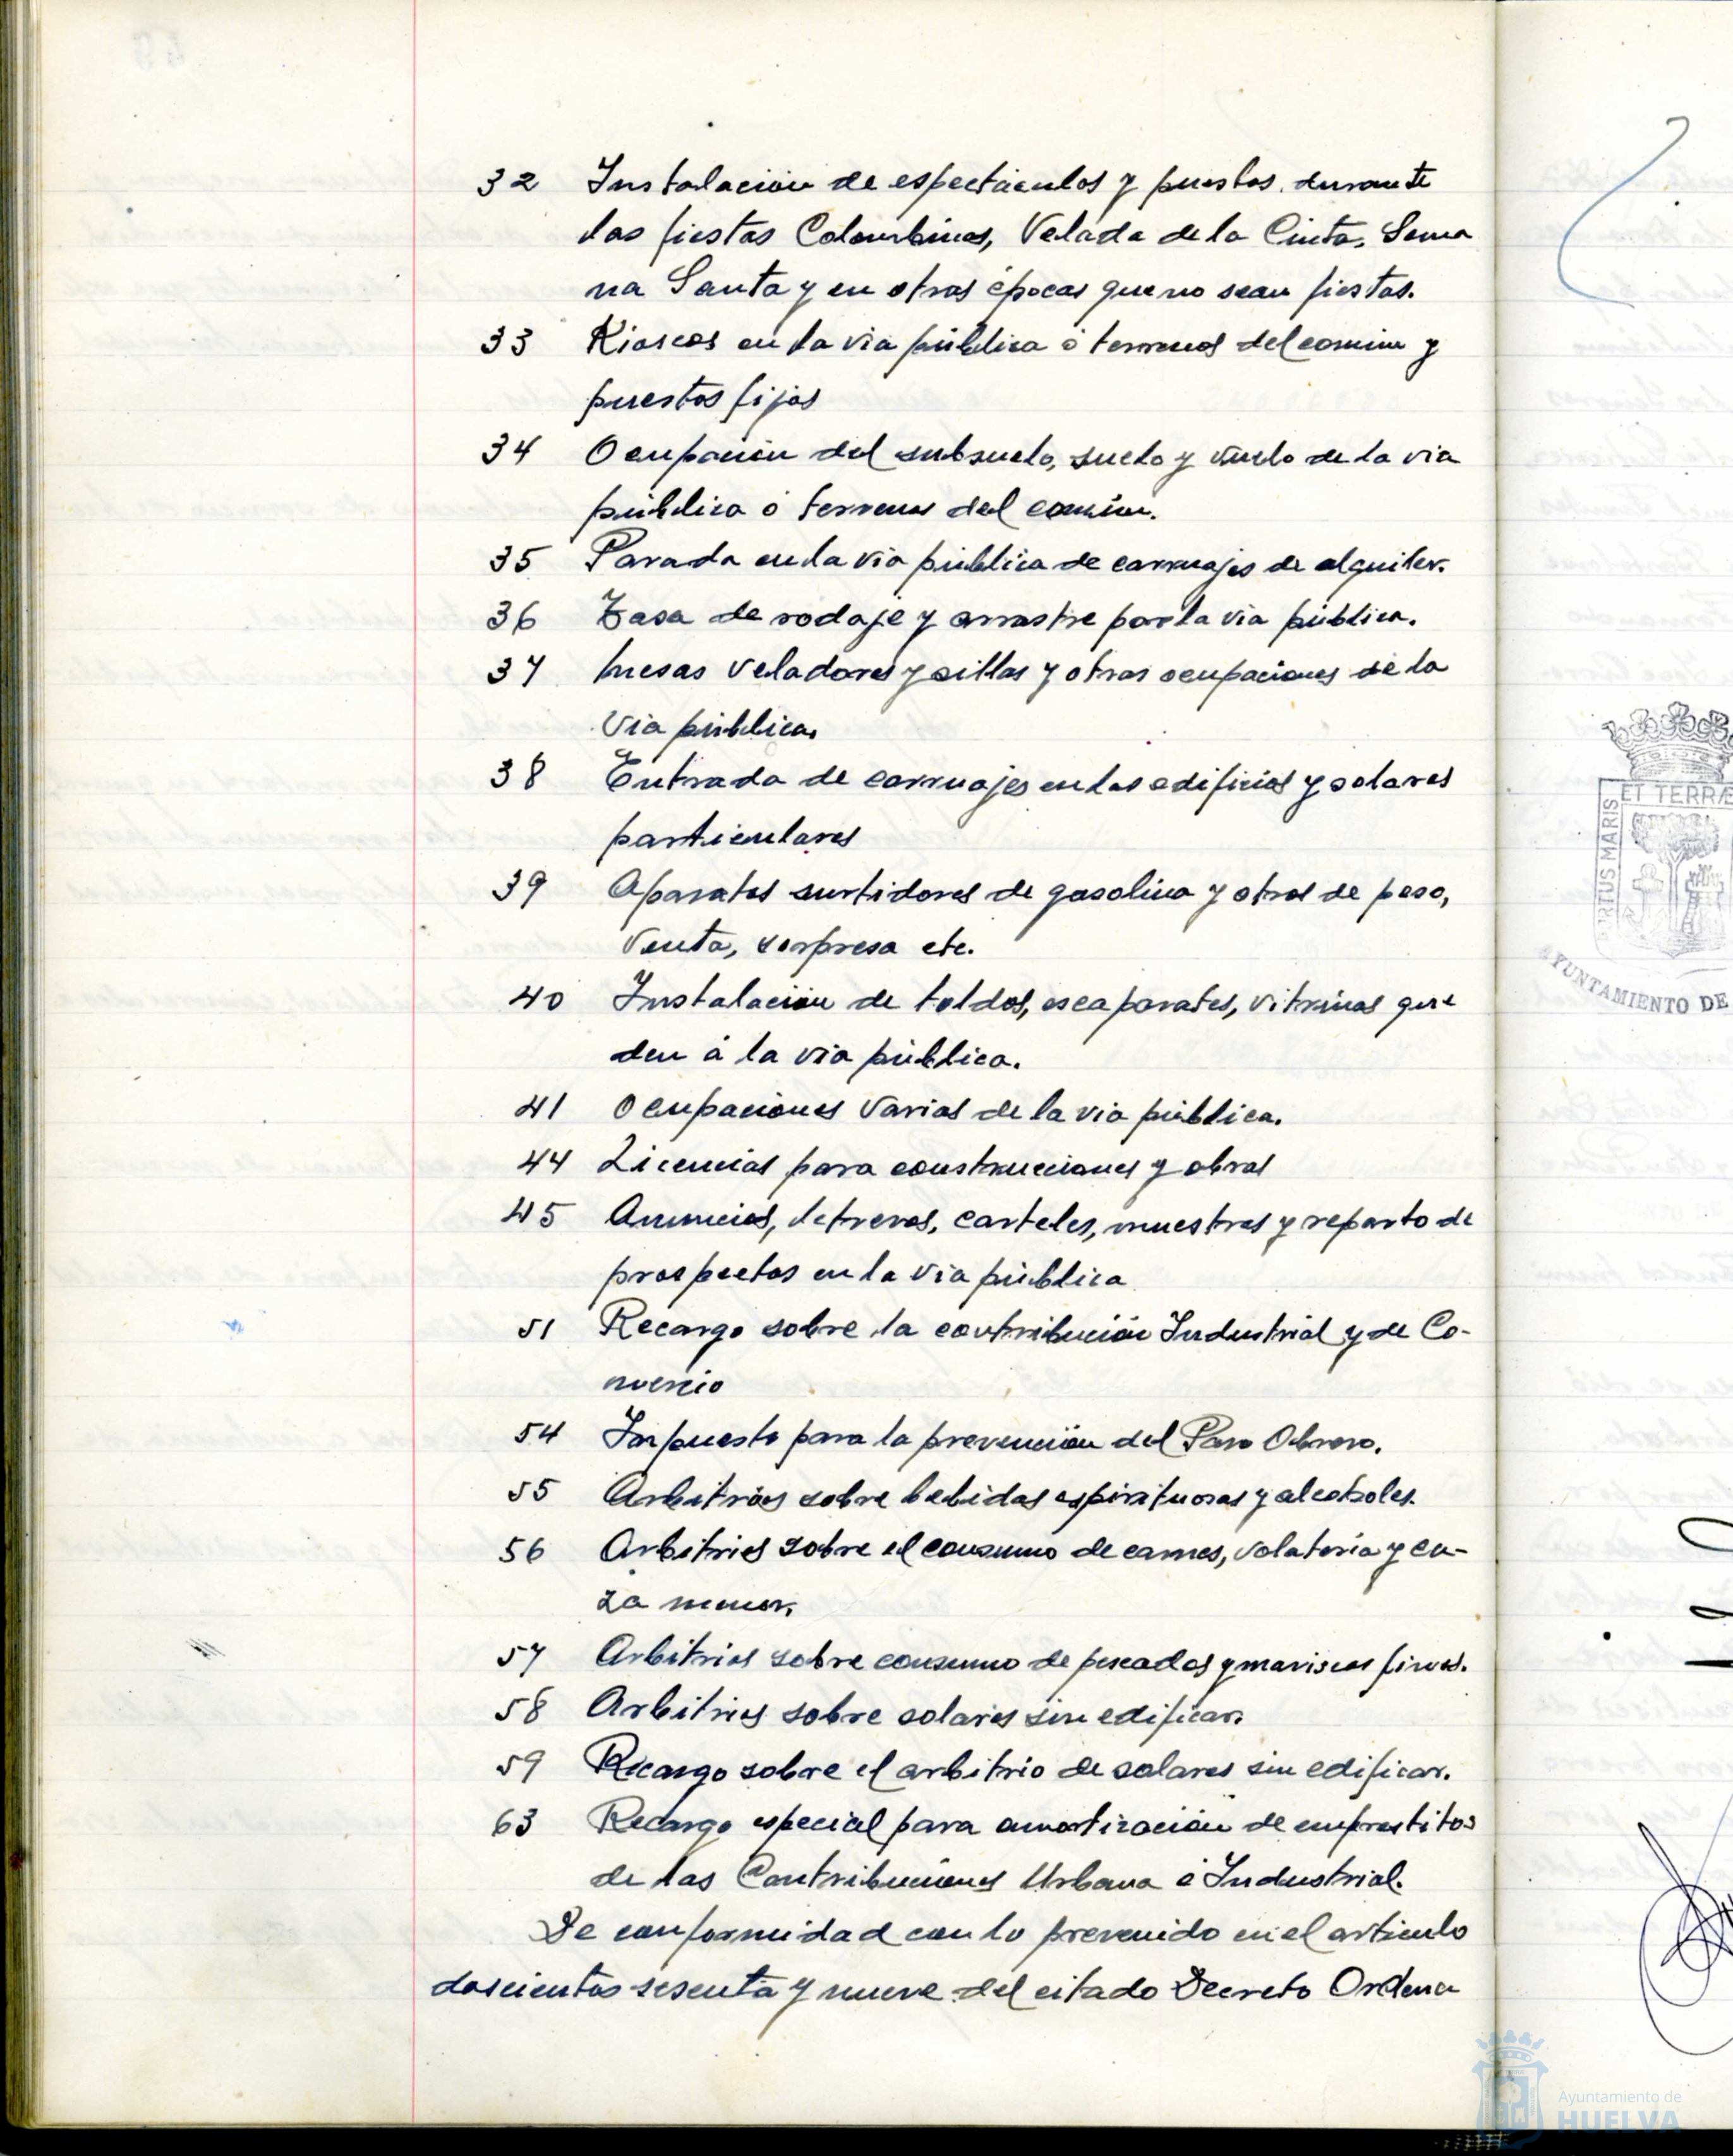 32 Instalación de espectáculos y puestos durante
las fiestas Colombinas, Velada de la Cinta, Sema
na Santa y en otras épocas que no sean fiestas.
33 Kioscos en la via pública ó terrenos del comun y
puestos fijos
34 Ocupación del subsuelo, suelo y vuelo de la via
pública ó terrenos del comun.
35 Parada en la via pública de carruajes de alquiler.
36 Tasa de rodaje y arrastre por la via pública.
37 Mesas veladores y sillas y otras ocupaciones de la
via pública.
38 Entrada de carruajes en los edificios y solares
particulares
39 Aparatos surtidores de gasolina y otros de peso,
venta, sorpresa etc.
40 Instalación de toldos, escaparates, vitrinas que
den á la via pública.
41 Ocupaciones varias de la via pública.
44 Licencias para construcciones y obras
45 Anuncios, letreros, carteles, muestras y reparto de
prospectos en la via pública
51 Recargo sobre la contribución Industrial y de Co-
mercio
54 Impuesto para la prevención del Paro Obrero.
55 Arbitrios sobre bebidas espirituosas y alcoholes.
56 Arbitrios sobre el consumo de carnes, volateria y ca-
za menor.
57 Arbitrios sobre consumo de pescados y mariscos finos.
58 Arbitrios sobre solares sin edificar.
59 Recargo sobre el arbitrio de solares sin edificar.
63 Recargo especial para amortización de emprestitos
de las Contribuciones Urbana é Industrial.
De conformidad con lo prevenido en el articulo
doscientos sesenta y nueve del citado Decreto Ordena
PORTUS MARIS
ET TERRÆ
AYUNTAMIENTO DE
Ayuntamiento de
HUELVA